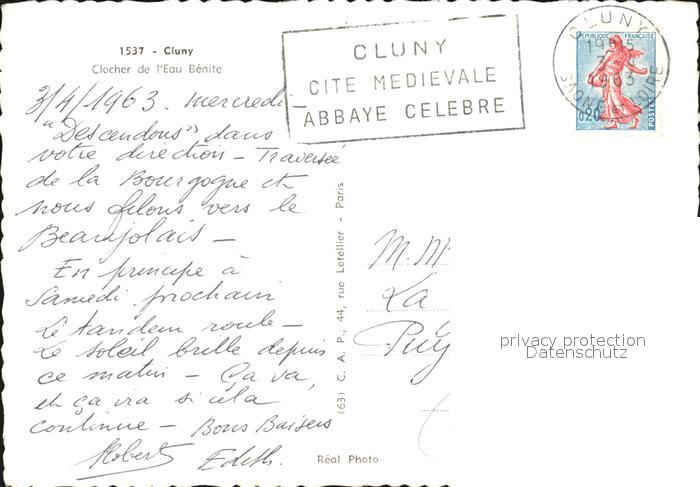 1537 - Cluny
Clocher de l'Eau Bénite
CLUNY
CITE MEDIEVALE
ABBAYE CELEBRE
CLUNY
1963
SAONE ET LOIRE
REPUBLIQUE FRANÇAISE
0,20
POSTES
3/4/1963. Mercredi
"Descendons" dans
votre direction - Traversée
de la Bourgogne et
nous filons vers le
Beaujolais -
En principe à
Samedi prochain
Le tandem roule -
Le soleil brille depuis
ce matin - Ça va,
et ça ira si cela
continue - Bons Baisers
Robert Edith.
(63) C. A. P., 44, rue Letellier - Paris
Réal Photo
M. M
La
Puy
privacy protection
Datenschutz